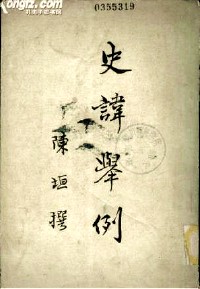 0355319
史諱舉例
陳垣撰